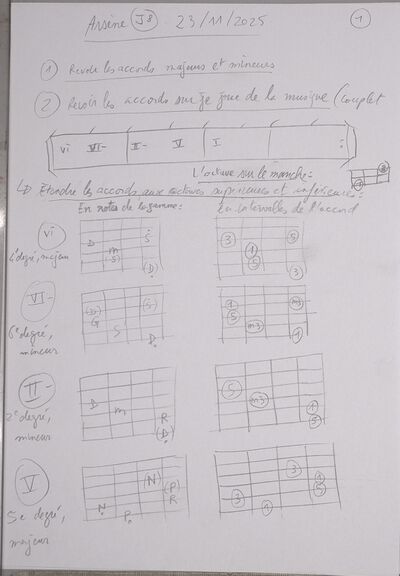 Arsène J8 - 23/11/2025 1
1 Revoir les accords majeurs et mineurs
2 Revoir les accords sur je joue de la musique (couplet
vi VI- II- V I :
L'octave sur le manche =
↳ Etendre les accords aux octaves supérieures et inférieures:
En notes de la gamme: En intervalles de l'accord
vi
4e degré, majeur
D S m (S) (D)
3 1 5 3
VI-
6e degré, mineur
(D) (S) G S D
1 5 m3 m3 1
II-
2e degré, mineur
D m R (D)
5 m3 1 5
V
5e degré, majeur
N (P) R N P
3 1 5 3 1